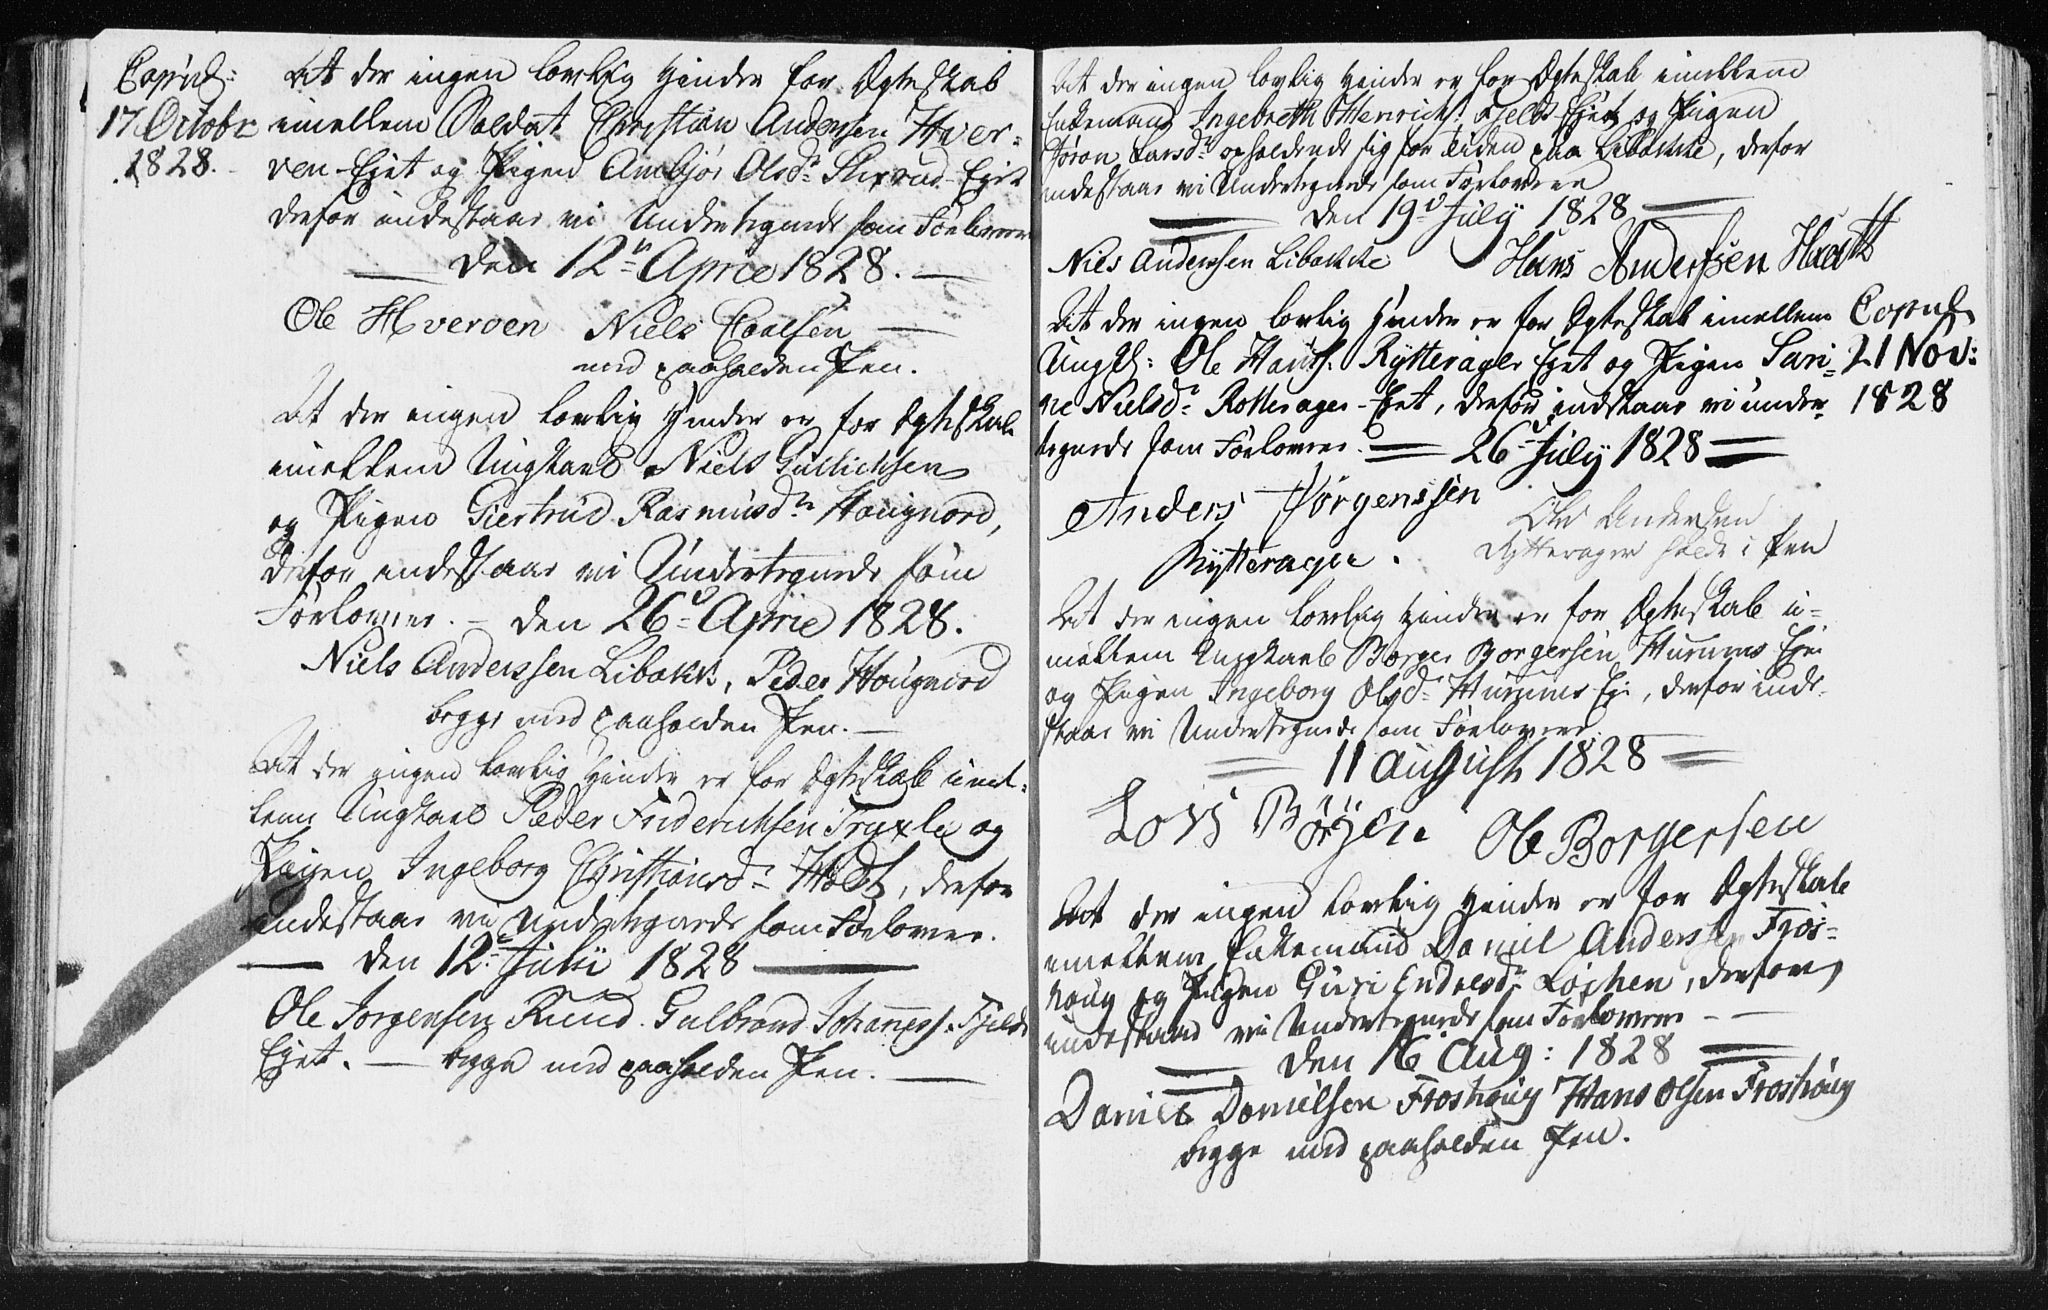 Copul:
17 Octobr
1828.
At der ingen lovlig Hinder for Ægteskab
imellem Soldat Christian Andersen Hver-
ven-Eyet og Pigen Anbjør Olsd:
derfor indestaar vi Undertegnede som Forlovere
den 12te April 1828.
Ole Hverven Niels Poulsen
med paaholden Pen.
At der ingen lovlig Hinder er for Ægteskab
imellem Ungkarl Niels Gullichsen
og Pigen Giertrud Rasmusdr Hougnord,
derfor indestaar vi Undertegnede som
Forlovere. – den 26de April 1828.
Niels Anderssen Libakke, Peder Hougnord
begge med paaholden Pen. –
At der ingen lovlig Hinder er for Ægteskab imel-
lem Ungkarl Peder Friderichsen Tryxle og
Pigen Ingeborg Christiansdr Wold, derfor
indestaar vi Undertegnede som Forlovere.
den 12te Julii 1828
Ole Jorgensen Ruud. Gulbrand Johanness: Fjelds
Eyet. – begge med paaholden Pen. –
At der ingen lovlig Hinder er for Ægteskab imellem
Enkemand Ingebreth Henrichs: Fjelds Eyet og Pigen
Jøran Larsdr opholdende sig for Tiden paa Libakke, derfor
indestaar vi Undertegnede som Forlovere
den 19de July 1828
Niels Anderssen Libakke Hans Anderssen
At der ingen lovlig Hinder er for Ægteskab imellem
Ungk: Ole Hans: Rytterager Eyet og Pigen Sari-
ne Nielsdr Rotterager-Eyet, derfor indstaar vi under-
tegnede som Forlovere. 26de July 1828
Copul:
21 Nov:
1828
Anders Jørgenssen
Rytterager.
Ole Andersen
Rytterager holdt i Pen
At der ingen lovlig Hinder er for Ægteskab i-
mellem Ungkarl Borger Borgersen Hurums Eje
og Pigen Ingeborg Olsdr Hurums Eje, derfor inde-
staar vi Undertegnede som Forlovere
11 August 1828
Lors Børgen Ole Borgersen
At der ingen lovlig Hinder er for Ægteskab
imellem Enkemand Daniel Anderssen Fros-
houg og Pigen Guri Endresdr Løchen, derfor
indestaar vi Undertegnede som Forlovere – –
den 16 Aug: 1828
Daniel Danielsen Froshoug Hans Olsen Froshoug
begge med paaholden Pen.